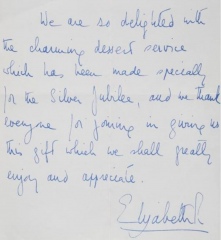 We are so delighted with
the charming dessert service
which has been made specially
for the Silver Jubilee, and we thank
everyone for joining in giving us
this gift which we shall greatly
enjoy and appreciate.
Elizabeth R